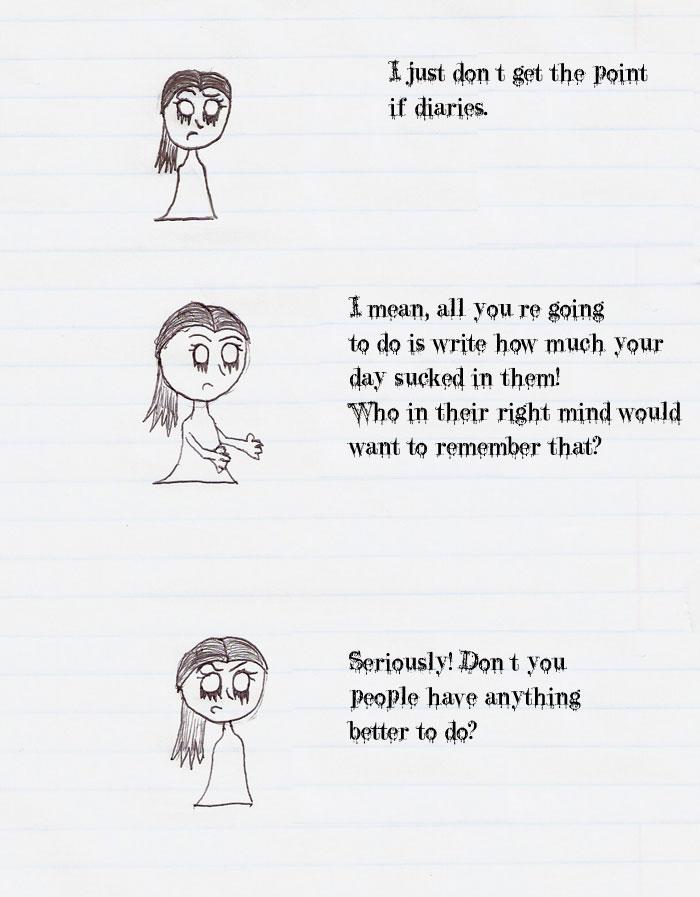 I just don t get the point
if diaries.
I mean, all you re going
to do is write how much your
day sucked in them!
Who in their right mind would
want to remember that?
Seriously! Don t you
people have anything
better to do?